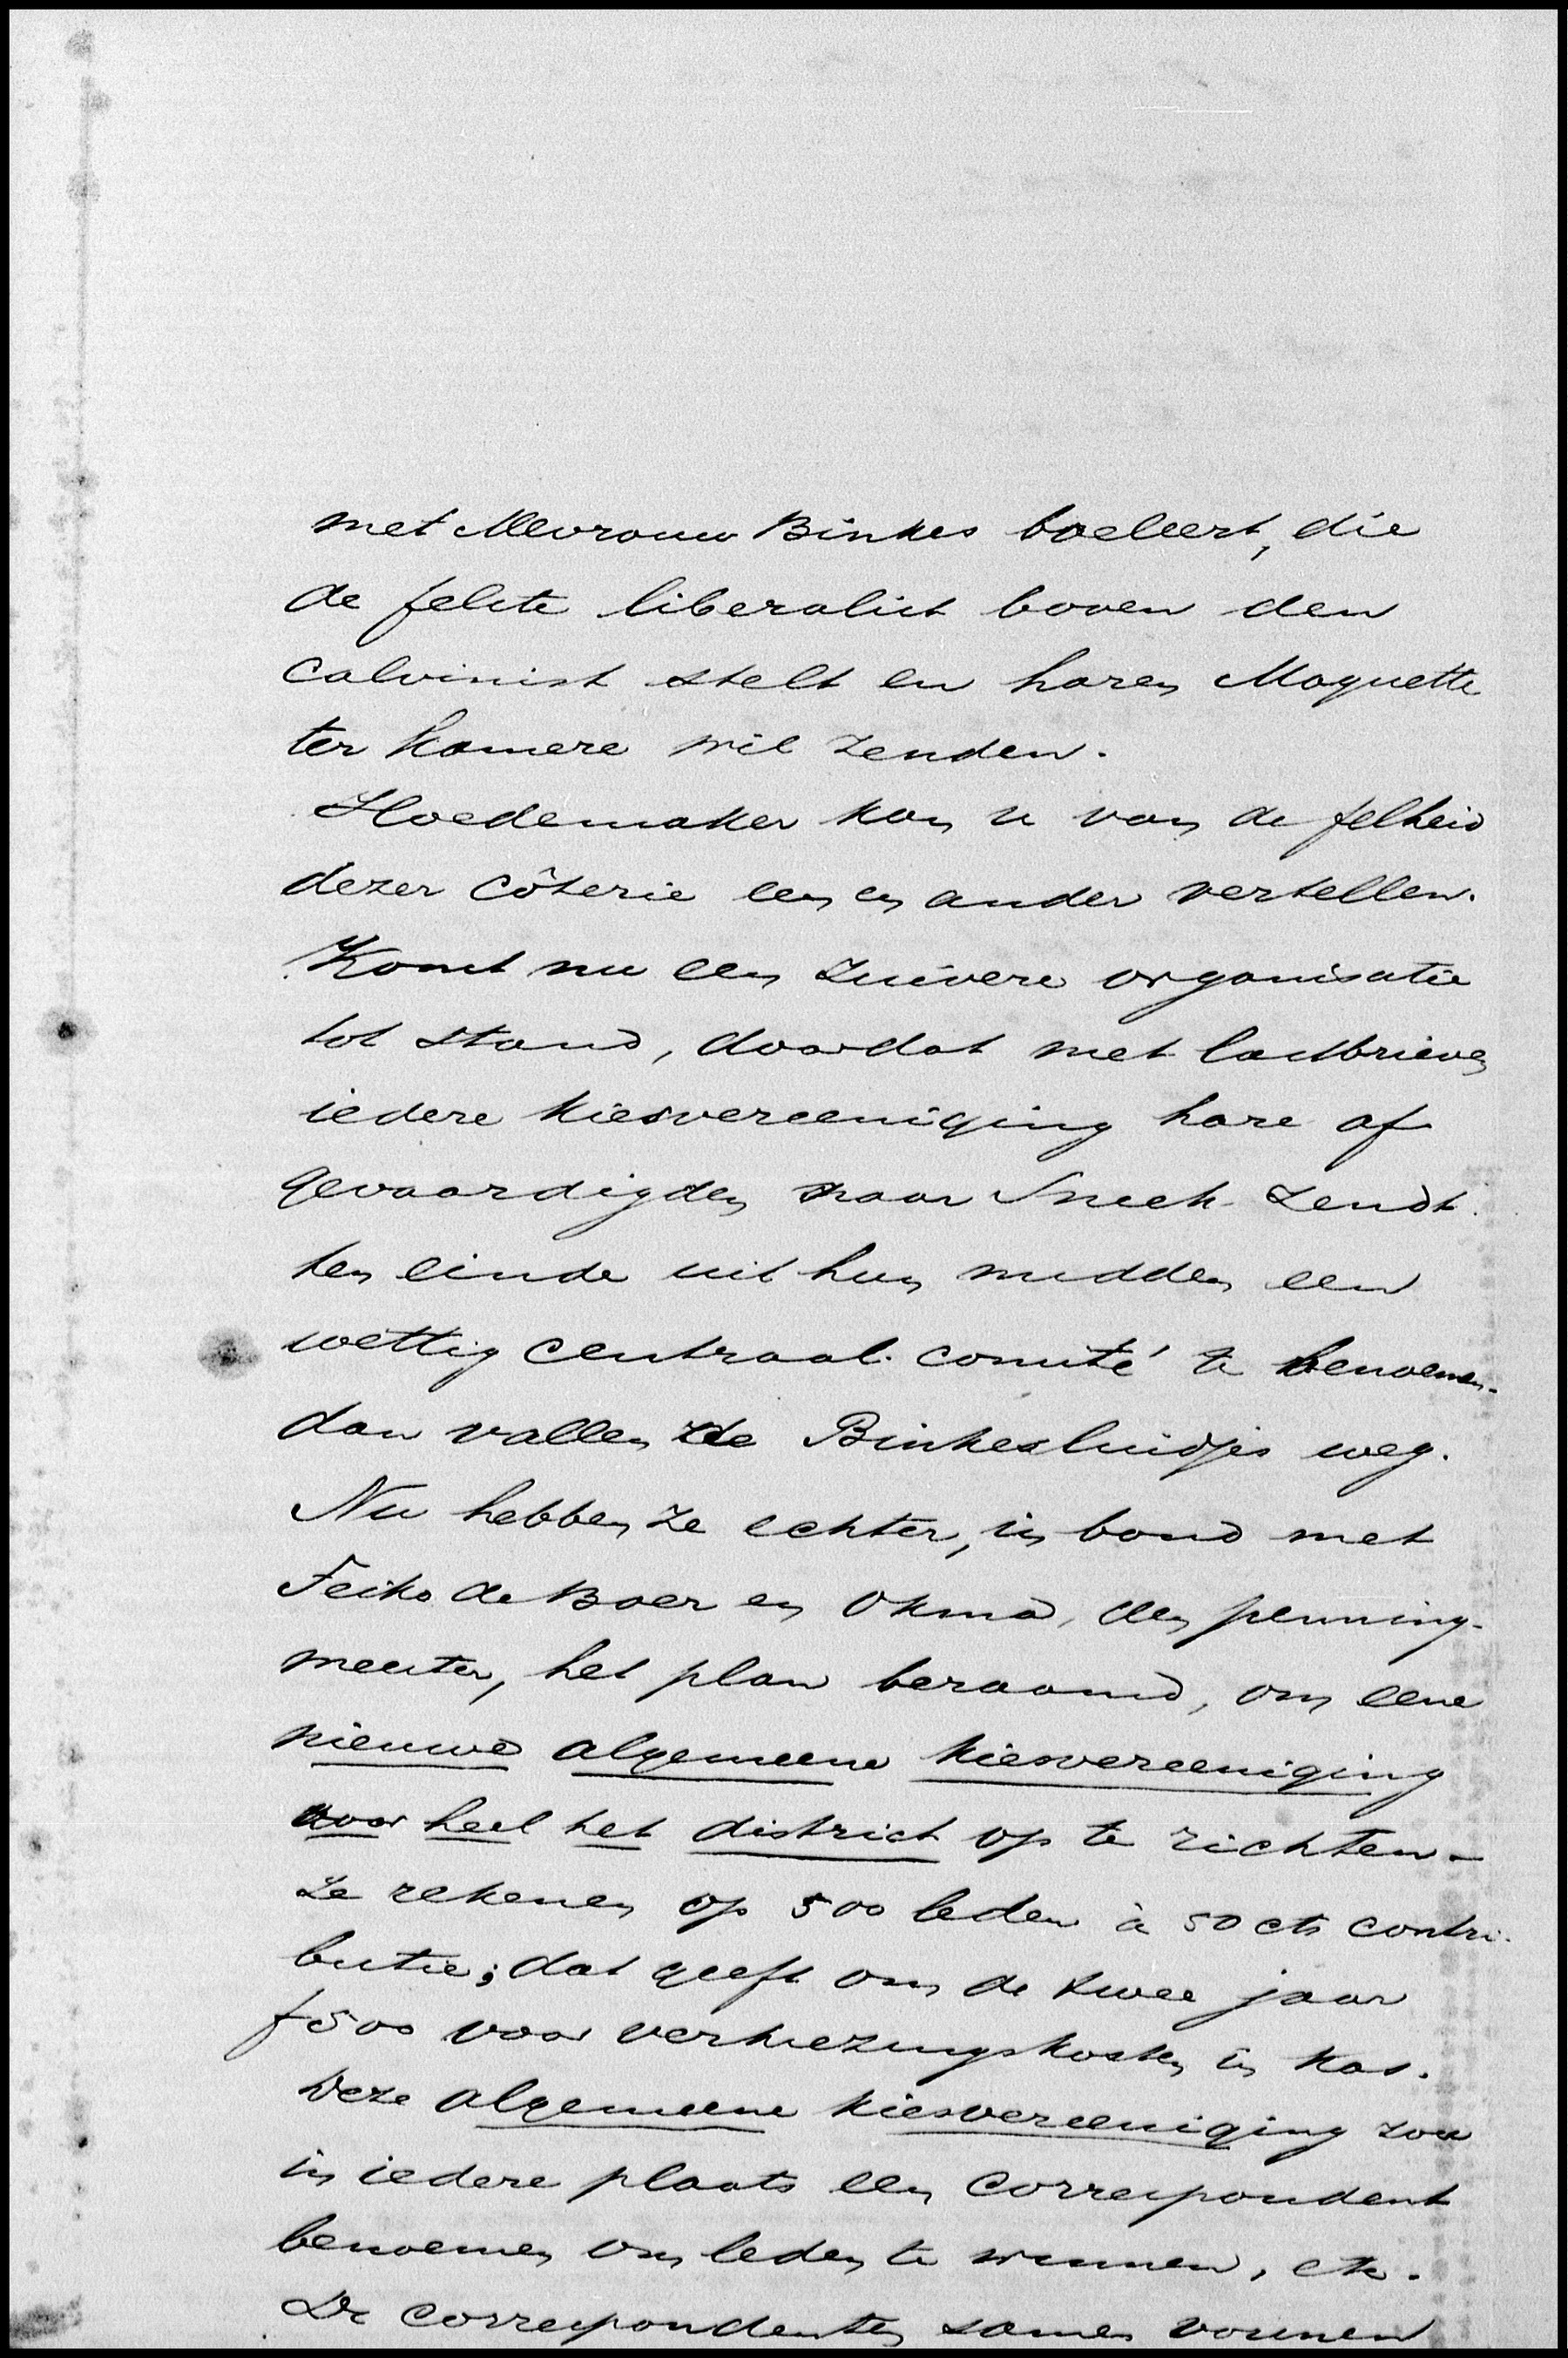 met Mevrouw Binkes boeleert, die
de felste liberalist boven den
calvinist stelt en haren Moquette
ter Kamere wil zenden.
Hoedemaker kan u van de felheid
dezer côterie een en ander vertellen.
Komt nu een zuivere organisatie
tot stand, doordat met lastbrieven
iedere kiesvereeniging hare af
gevaardigden naar Sneek zendt
ten einde uit hun midden een
wettig centraal comité te benoemen.
dan vallen de Binkesluidjes weg.
Nu hebben ze echter, in bond met
Feiko de Boer en Okma, den penning-
meester, het plan beraamd, om eene
nieuwe algemeene kiesvereeniging
voor heel het district op te richten -
Ze rekenen op 500 leden à 50 cts contri-
butie; dat geeft om de twee jaar
f 500 voor verkiezingskosten in kas.
Deze algemeene kiesvereeniging zou
in iedere plaats een correspondent
benoemen om leden te winnen, etc.
De correspondenten samen vormen